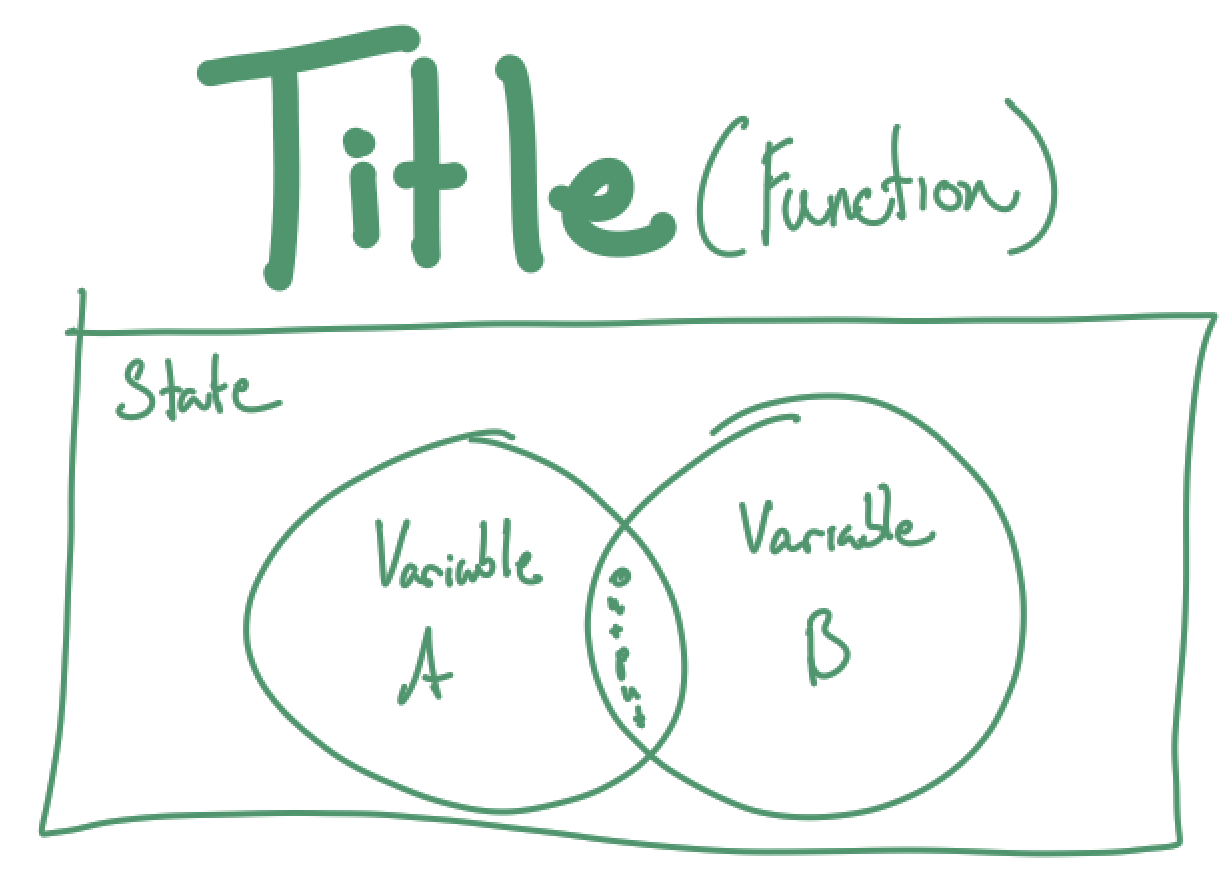 Title (Function)
State
Variable
A
Output
Variable
B